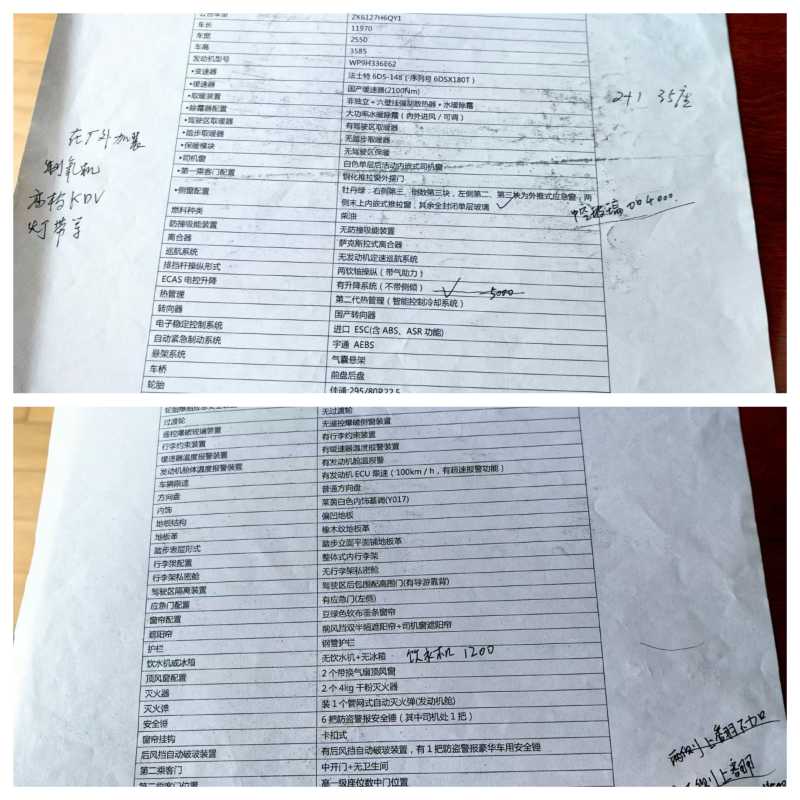 ZK6127H6QY1
车长 11970
车宽 2550
车高 3585
发动机型号 WP9H336E62
•变速器 法士特 6DS-148（序列号 6DSX180T）
•缓速器 国产缓速器(2100Nm)
•取暖装置 非独立+六壁挂强制散热器+水暖除霜
•除霜器配置 大功率水暖除霜（内外进风/可调）
•驾驶区取暖器 有驾驶区取暖器
•踏步取暖器 无踏步取暖器
•保暖模块 无驾驶区保暖
•司机窗 白色单层后活动内嵌式司机窗
•第一乘客门配置 钢化推拉窗外摆门
•侧窗配置 牡丹绿：右侧第三、倒数第三块，左侧第二、第三块为外推式应急窗；两
侧末上内嵌式推拉窗，其余全封闭单层玻璃
燃料种类 柴油
防撞吸能装置 无防撞吸能装置
离合器 萨克斯拉式离合器
巡航系统 无发动机定速巡航系统
排挡杆操纵形式 两软轴操纵（带气助力）
ECAS 电控升降 有升降系统（不带侧倾）
热管理 第二代热管理（智能控制冷却系统）
转向器 国产转向器
电子稳定控制系统 进口 ESC(含 ABS、ASR 功能)
自动紧急制动系统 宇通 AEBS
悬架系统 气囊悬架
车桥 前盘后盘
轮胎 佳通:295/80R22.5
在厂外加装
制氧机
高档KDV
灯带等
24+1 35座
中空玻璃 加4000.
5000
过渡轮 无过渡轮
遥控爆破玻璃装置 无遥控爆破侧窗装置
行李约束装置 有行李约束装置
缓速器温度报警装置 有缓速器温度报警装置
发动机舱体温度报警装置 有发动机舱温报警
车辆限速 有发动机 ECU 限速（100km/h，有超速报警功能）
方向盘 普通方向盘
内饰 莱茵白色内饰基调(Y017)
地板结构 偏凹地板
地板革 橡木纹地板革
踏步表层形式 踏步立面平面铺地板革
行李架配置 整体式内行李架
行李架私密舱 无行李架私密舱
驾驶区隔离装置 驾驶区后包围配高围门(有导游靠背)
应急门配置 有应急门(左侧)
窗帘配置 豆绿色软布歪条窗帘
遮阳帘 前风挡双半幅遮阳帘+司机窗遮阳帘
护栏 钢管护栏
饮水机或冰箱 无饮水机+无冰箱 饮水机 1200
顶风窗配置 2 个带换气扇顶风窗
灭火器 2 个 4kg 干粉灭火器
灭火弹 装 1 个管网式自动灭火弹(发动机舱)
安全锤 6 把防盗警报安全锤（其中司机处 1 把）
窗帘挂钩 卡扣式
后风挡自动破玻装置 有后风挡自动破玻装置，有 1 把防盗警报豪华车用安全锤
第二乘客门 中开门+无卫生间
第二乘客门位置 高一级座位数中门位置